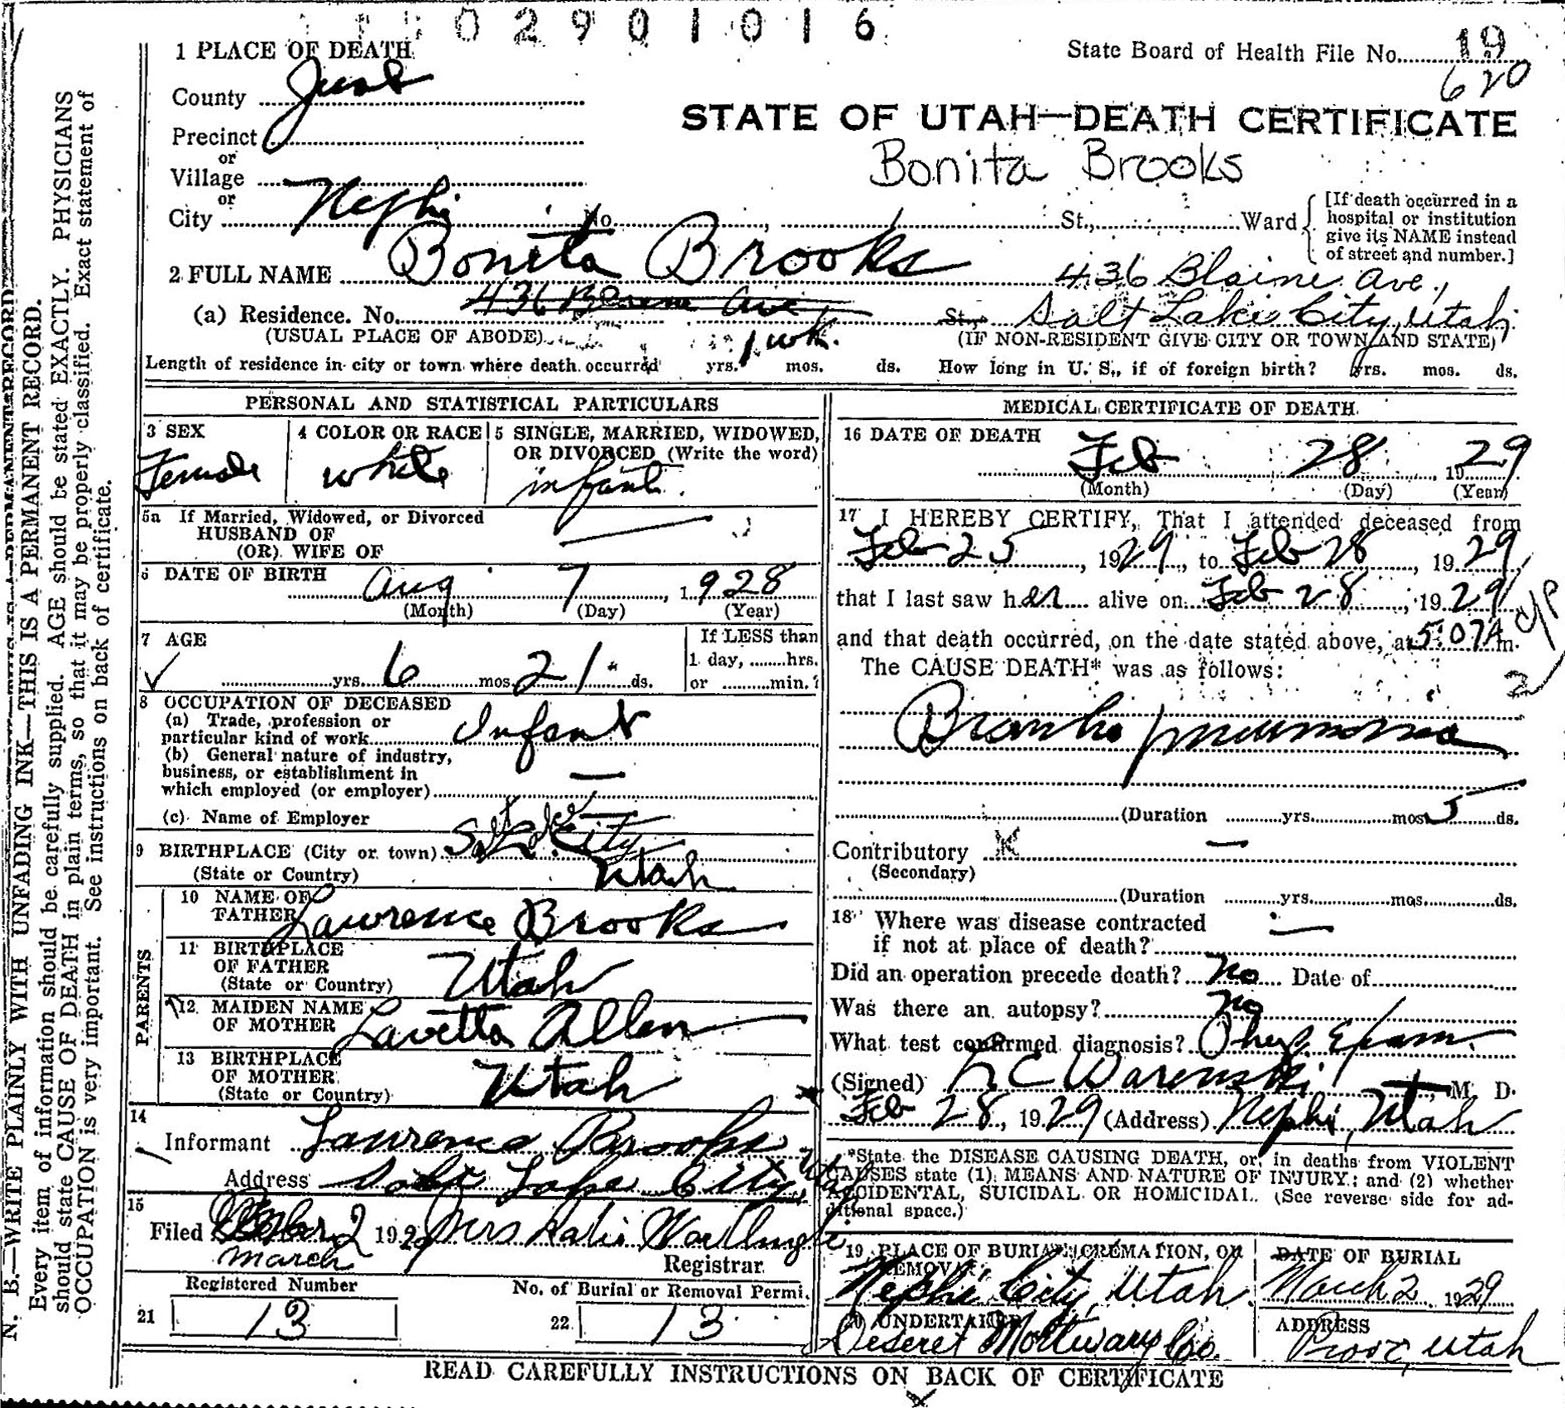 02901016
1 PLACE OF DEATH
State Board of Health File No. 19
620
County Juab
STATE OF UTAH—DEATH CERTIFICATE
Precinct
or
Bonita Brooks
Village
or
City Nephi No. St., Ward
[If death occurred in a
hospital or institution
give its NAME instead
of street and number.]
2 FULL NAME Bonita Brooks
436 Blaine Ave,
(a) Residence. No. 436 Blaine Ave St., Salt Lake City, Utah
(USUAL PLACE OF ABODE) (IF NON-RESIDENT GIVE CITY OR TOWN AND STATE)
1 wk.
Length of residence in city or town where death occurred yrs. mos. ds. How long in U. S., if of foreign birth? yrs. mos. ds.
PERSONAL AND STATISTICAL PARTICULARS
3 SEX
Female
4 COLOR OR RACE
white
5 SINGLE, MARRIED, WIDOWED,
OR DIVORCED (Write the word)
infant
5a If Married, Widowed, or Divorced
HUSBAND OF
(OR) WIFE OF —
6 DATE OF BIRTH Aug 7, 1928
(Month) (Day) (Year)
7 AGE
yrs. 6 mos. 21 ds.
If LESS than
1 day, ........hrs.
or .........min.?
8 OCCUPATION OF DECEASED
(a) Trade, profession or
particular kind of work Infant
(b) General nature of industry,
business, or establishment in
which employed (or employer) —
(c) Name of Employer
9 BIRTHPLACE (City or town) Salt Lake City
(State or Country) Utah
PARENTS
10 NAME OF
FATHER Lawrence Brooks
11 BIRTHPLACE
OF FATHER
(State or Country) Utah
12 MAIDEN NAME
OF MOTHER Lavetta Allen
13 BIRTHPLACE
OF MOTHER
(State or Country) Utah
14
Informant Lawrence Brooks
Address Salt Lake City, Utah
15
Filed 2 1929 Mrs Katie
March Registrar
Registered Number No. of Burial or Removal Permi.
21 13 22 13
MEDICAL CERTIFICATE OF DEATH
16 DATE OF DEATH
Feb 28, 1929
(Month) (Day) (Year)
17 I HEREBY CERTIFY, That I attended deceased from
Feb 25, 1929, to Feb 28, 1929,
that I last saw her alive on Feb 28, 1929
and that death occurred, on the date stated above, at 5:07A m.
The CAUSE DEATH* was as follows:
Broncho pneumonia
(Duration yrs. mos. 5 ds.
Contributory —
(Secondary)
(Duration yrs. mos. ds.
18 Where was disease contracted
if not at place of death? —
Did an operation precede death? No Date of
Was there an autopsy? No
What test confirmed diagnosis? Phys. Exam.
(Signed) Warenski, M D.
Feb 28, 1929 (Address) Nephi, Utah
*State the DISEASE CAUSING DEATH, or, in deaths from VIOLENT
CAUSES state (1) MEANS AND NATURE OF INJURY; and (2) whether
ACCIDENTAL, SUICIDAL OR HOMICIDAL. (See reverse side for ad-
ditional space.)
19 PLACE OF BURIAL, CREMATION, OR
REMOVAL
Nephi City, Utah
DATE OF BURIAL
March 2 1929
20 UNDERTAKER
Deseret Mortuary Co.
ADDRESS
Provo, Utah
READ CAREFULLY INSTRUCTIONS ON BACK OF CERTIFICATE
N. B.—WRITE PLAINLY WITH UNFADING INK—THIS IS A PERMANENT RECORD.
Every item of information should be carefully supplied. AGE should be stated EXACTLY. PHYSICIANS
should state CAUSE OF DEATH in plain terms, so that it may be properly classified. Exact statement of
OCCUPATION is very important. See instructions on back of certificate.